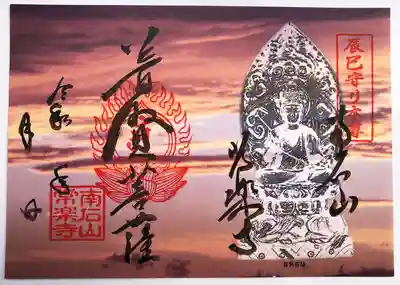 辰巳守り本尊
南石山
常楽寺
普賢菩薩
令和 年
月 日
南石山
常楽寺
普賢菩薩